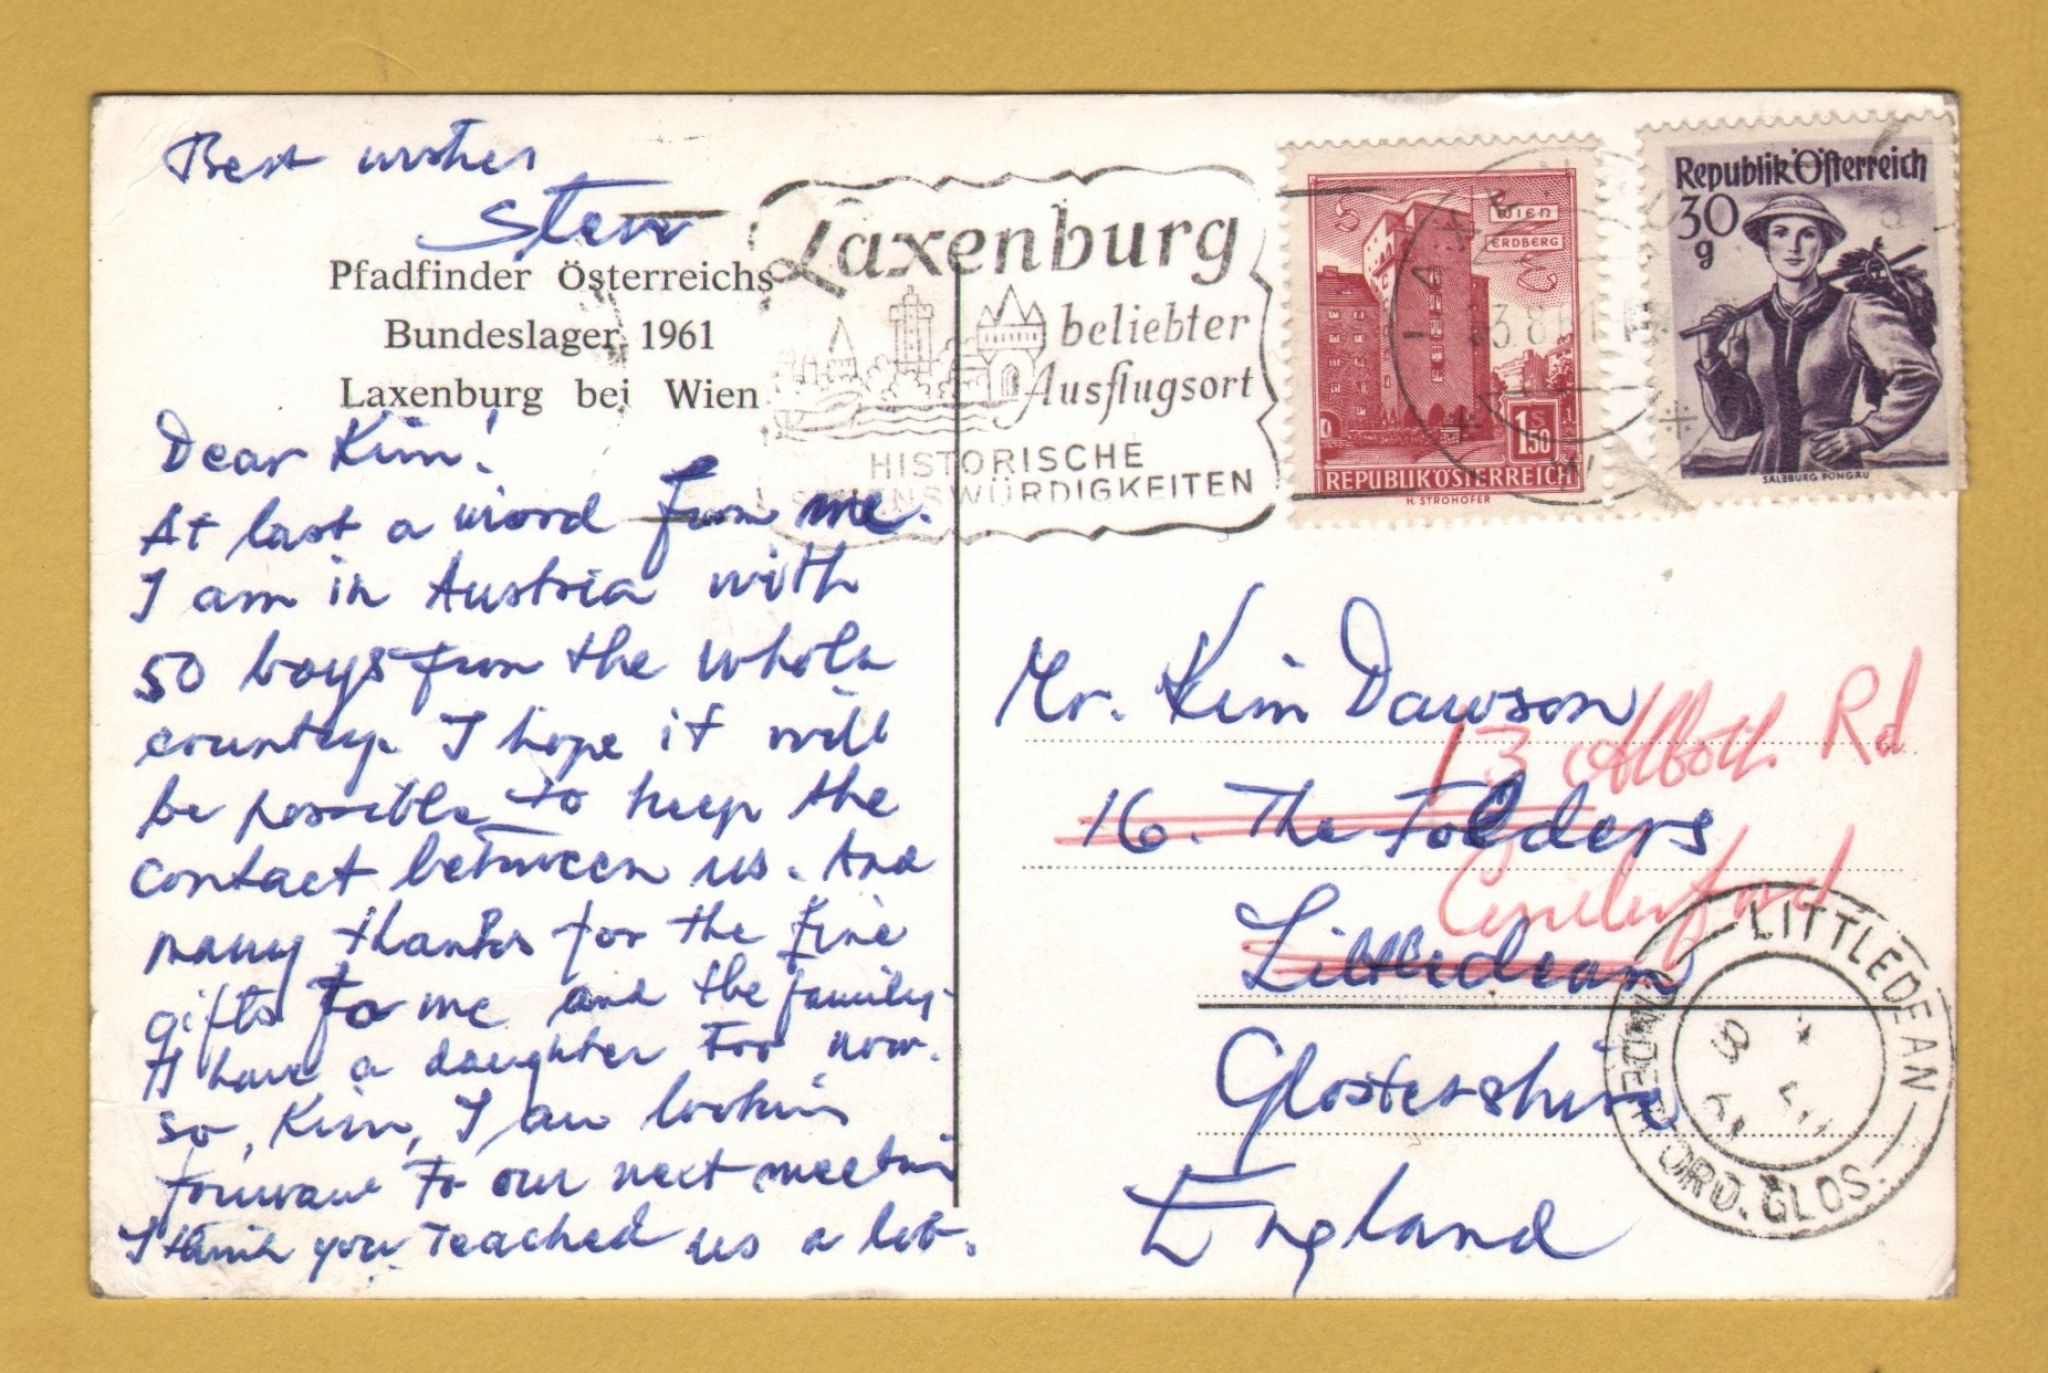 Best wishes
Sten
Pfadfinder Österreichs
Bundeslager 1961
Laxenburg bei Wien
Dear Kim!
At last a word from me.
I am in Austria with
50 boys from the whole
country. I hope it will
be possible to keep the
contact between us. And
many thanks for the fine
gifts to me and the family.
I have a daughter too now.
So, Kim, I am lookin
forward to our next meetin
I think you teached us a lot.
Laxenburg
beliebter
Ausflugsort
HISTORISCHE
SEHENSWÜRDIGKEITEN
WIEN
ERDBERG
1 S 50
REPUBLIK ÖSTERREICH
H. STROHOFER
Republik Österreich
30
g
SALZBURG PONGAU
Mr. Kim Dawson
13 Rd
16. The Folders
Cinderford
Littledean
Glostershire
England
LITTLEDEAN
CINDERFORD. GLOS.